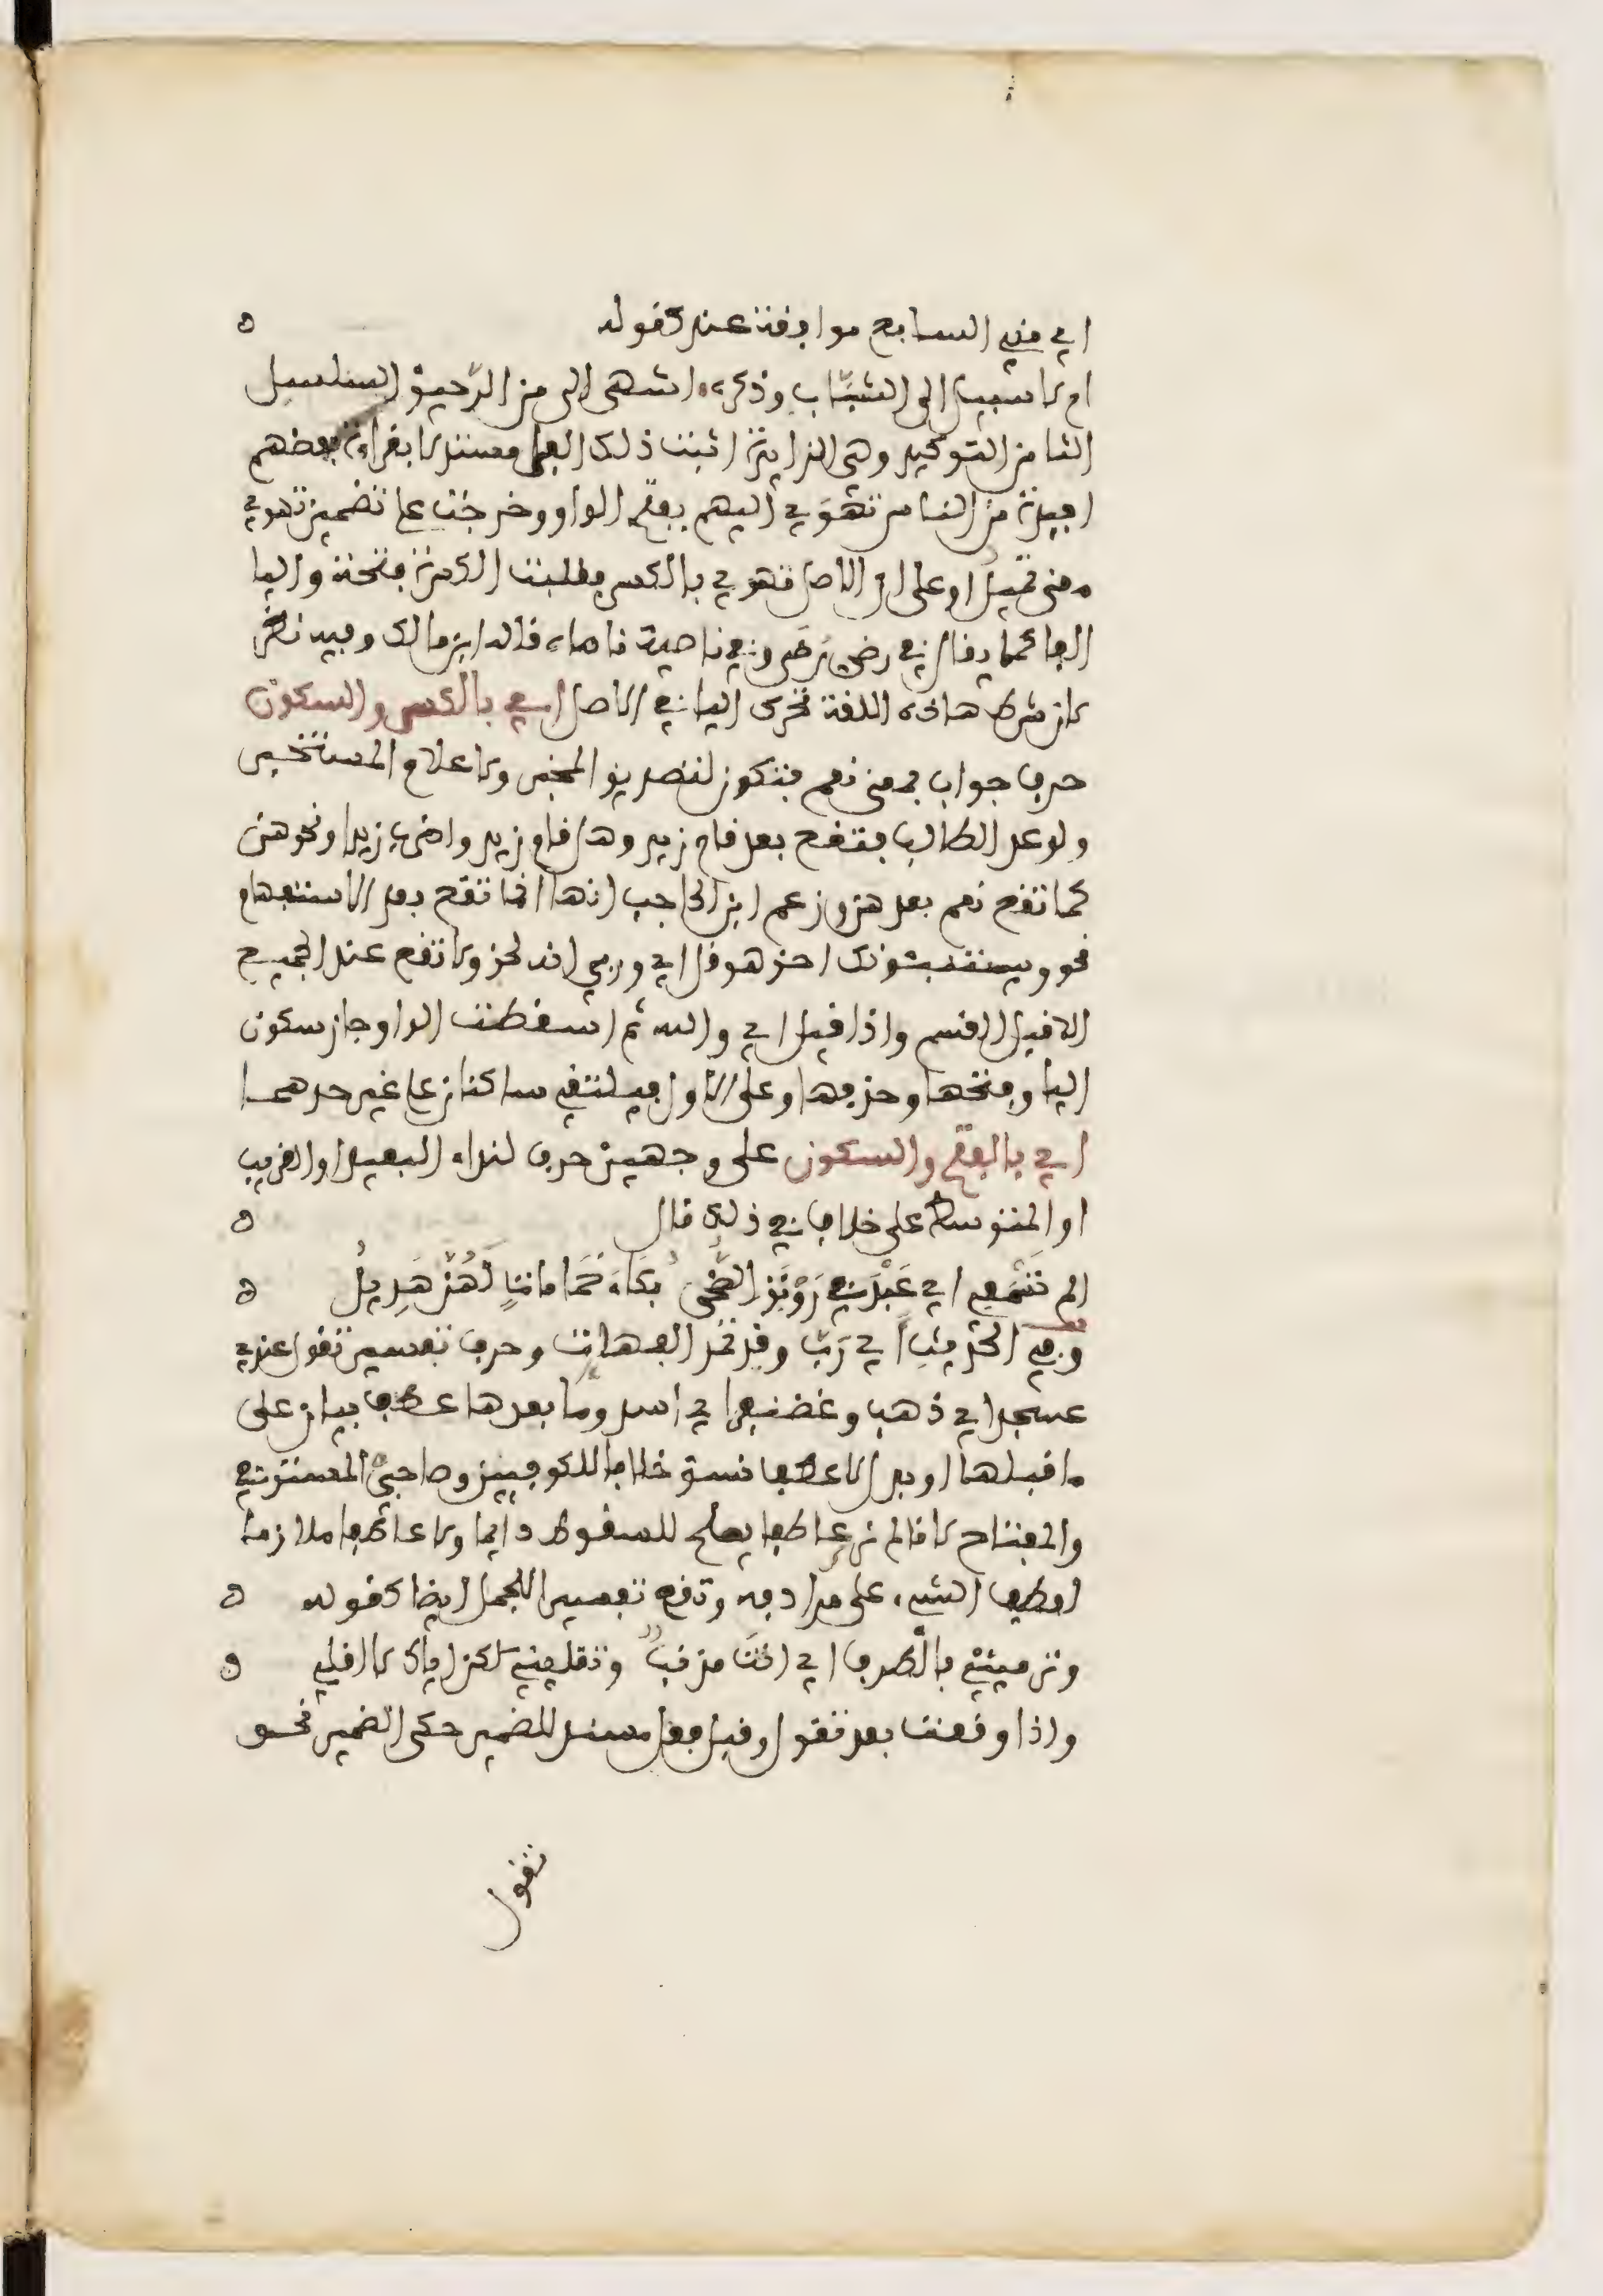 اي مني السابع موافقة عند كقوله ه
ام لا سبيل الى الشباب وذكره اشهى الي من الرحيق السلسل
الثامن التوكيد وهي الزايدة اثبت ذلك الفرا مستدلا بقراءة بعضهم
افيدة من الناس تهوَي اليهم بفتح الواو وخرجت على تضمين تهوي
معنى تميل او على ان الاصل تهوي بالكسر فقلبت الكسرة فتحة واليا
الفا كما يقال في رضي رضى وفي ناصية ناصاه قاله ابن مالك وفيه نظر
لان شرط هاذه اللغة تحرك اليا في الاصل اي بالكسر والسكون
حرف جواب بمعنى نعم فتكون لتصديق المخبر ولاعلام المستخبر
ولوعد الطالب فتقع بعد قام زيد وهل قام زيد واضرب زيدا ونحوهن
كما تقع نعم بعدهن وزعم ابن الحاجب انها انما تقع بعد الاستفهام
نحو ويستنبئونك احق هو قل اي وربي انه لحق ولا تقع عند الجميع
الا قبل القسم واذا قيل اي والله ثم اسقطت الواو جاز سكون
اليا وفتحها وحذفها وعلى الاول فيلتقي ساكنان على غير حدهما
اي بالفتح والسكون على وجهين حرف لنداء البعيد او القريب
او المتوسط على خلاف في ذلك قال ه
الم تسمعي اي عبد في رونق الضحى بكاء حمامات لهن هدير ه
وفي الحديث اي رب وقد تمد الفها وحرف تفسير تقول عندي
عسجد اي ذهب وغضنفر اي اسد وما بعدها عطف بيان على
ما قبلها او بدل لا عطف نسق خلافا للكوفيين وصاحبي المستوفى
والمفتاح لانا لم نر عاطفا يصلح للسقوط دايما ولا عاطفا ملازما
لعطف الشيء على مرادفه وتقع تفسيرا للجمل ايضا كقوله ه
وترمينني بالطرف اي انت مذنب وتقلينني لكن اياك لا اقلي ه
واذا وقعت بعد تقول وقبل فعل مسند للضمير حكي الضمير نحو
تقول